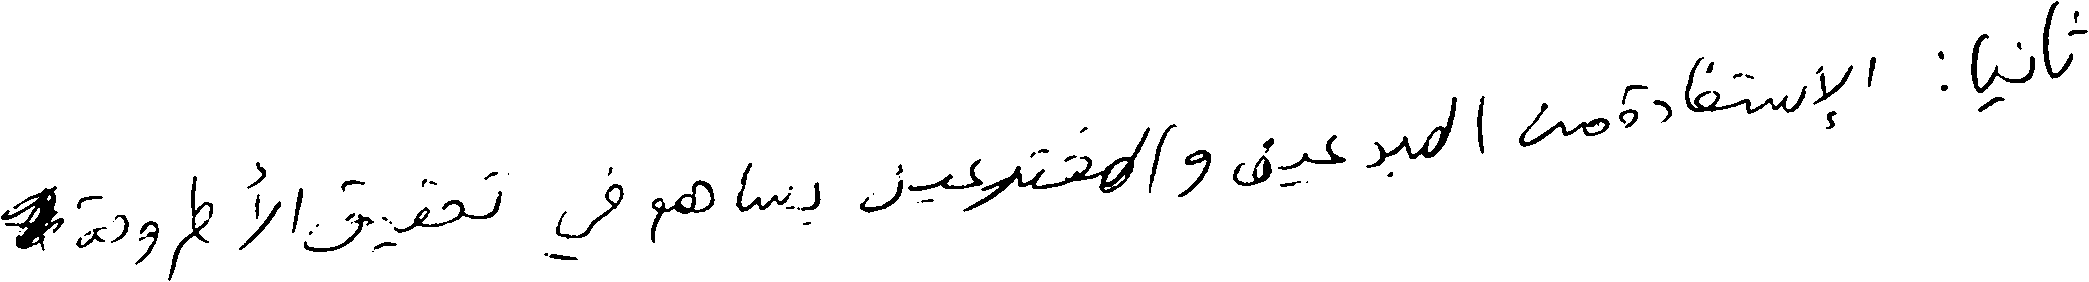 ثانيا: الإستفادة من المبدعين والمخترعين يساهم في تحقيق الأطروحة